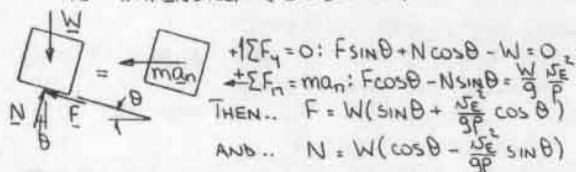 W
+↑ΣFy = 0: F SINθ + N COSθ - W = 0
man
=
←+ΣFn = man: F COSθ - N SINθ = W/g vE²/ρ
θ
N
F
θ
THEN.. F = W(SINθ + vE²/gρ COS θ)
AND.. N = W(COSθ - vE²/gρ SINθ)